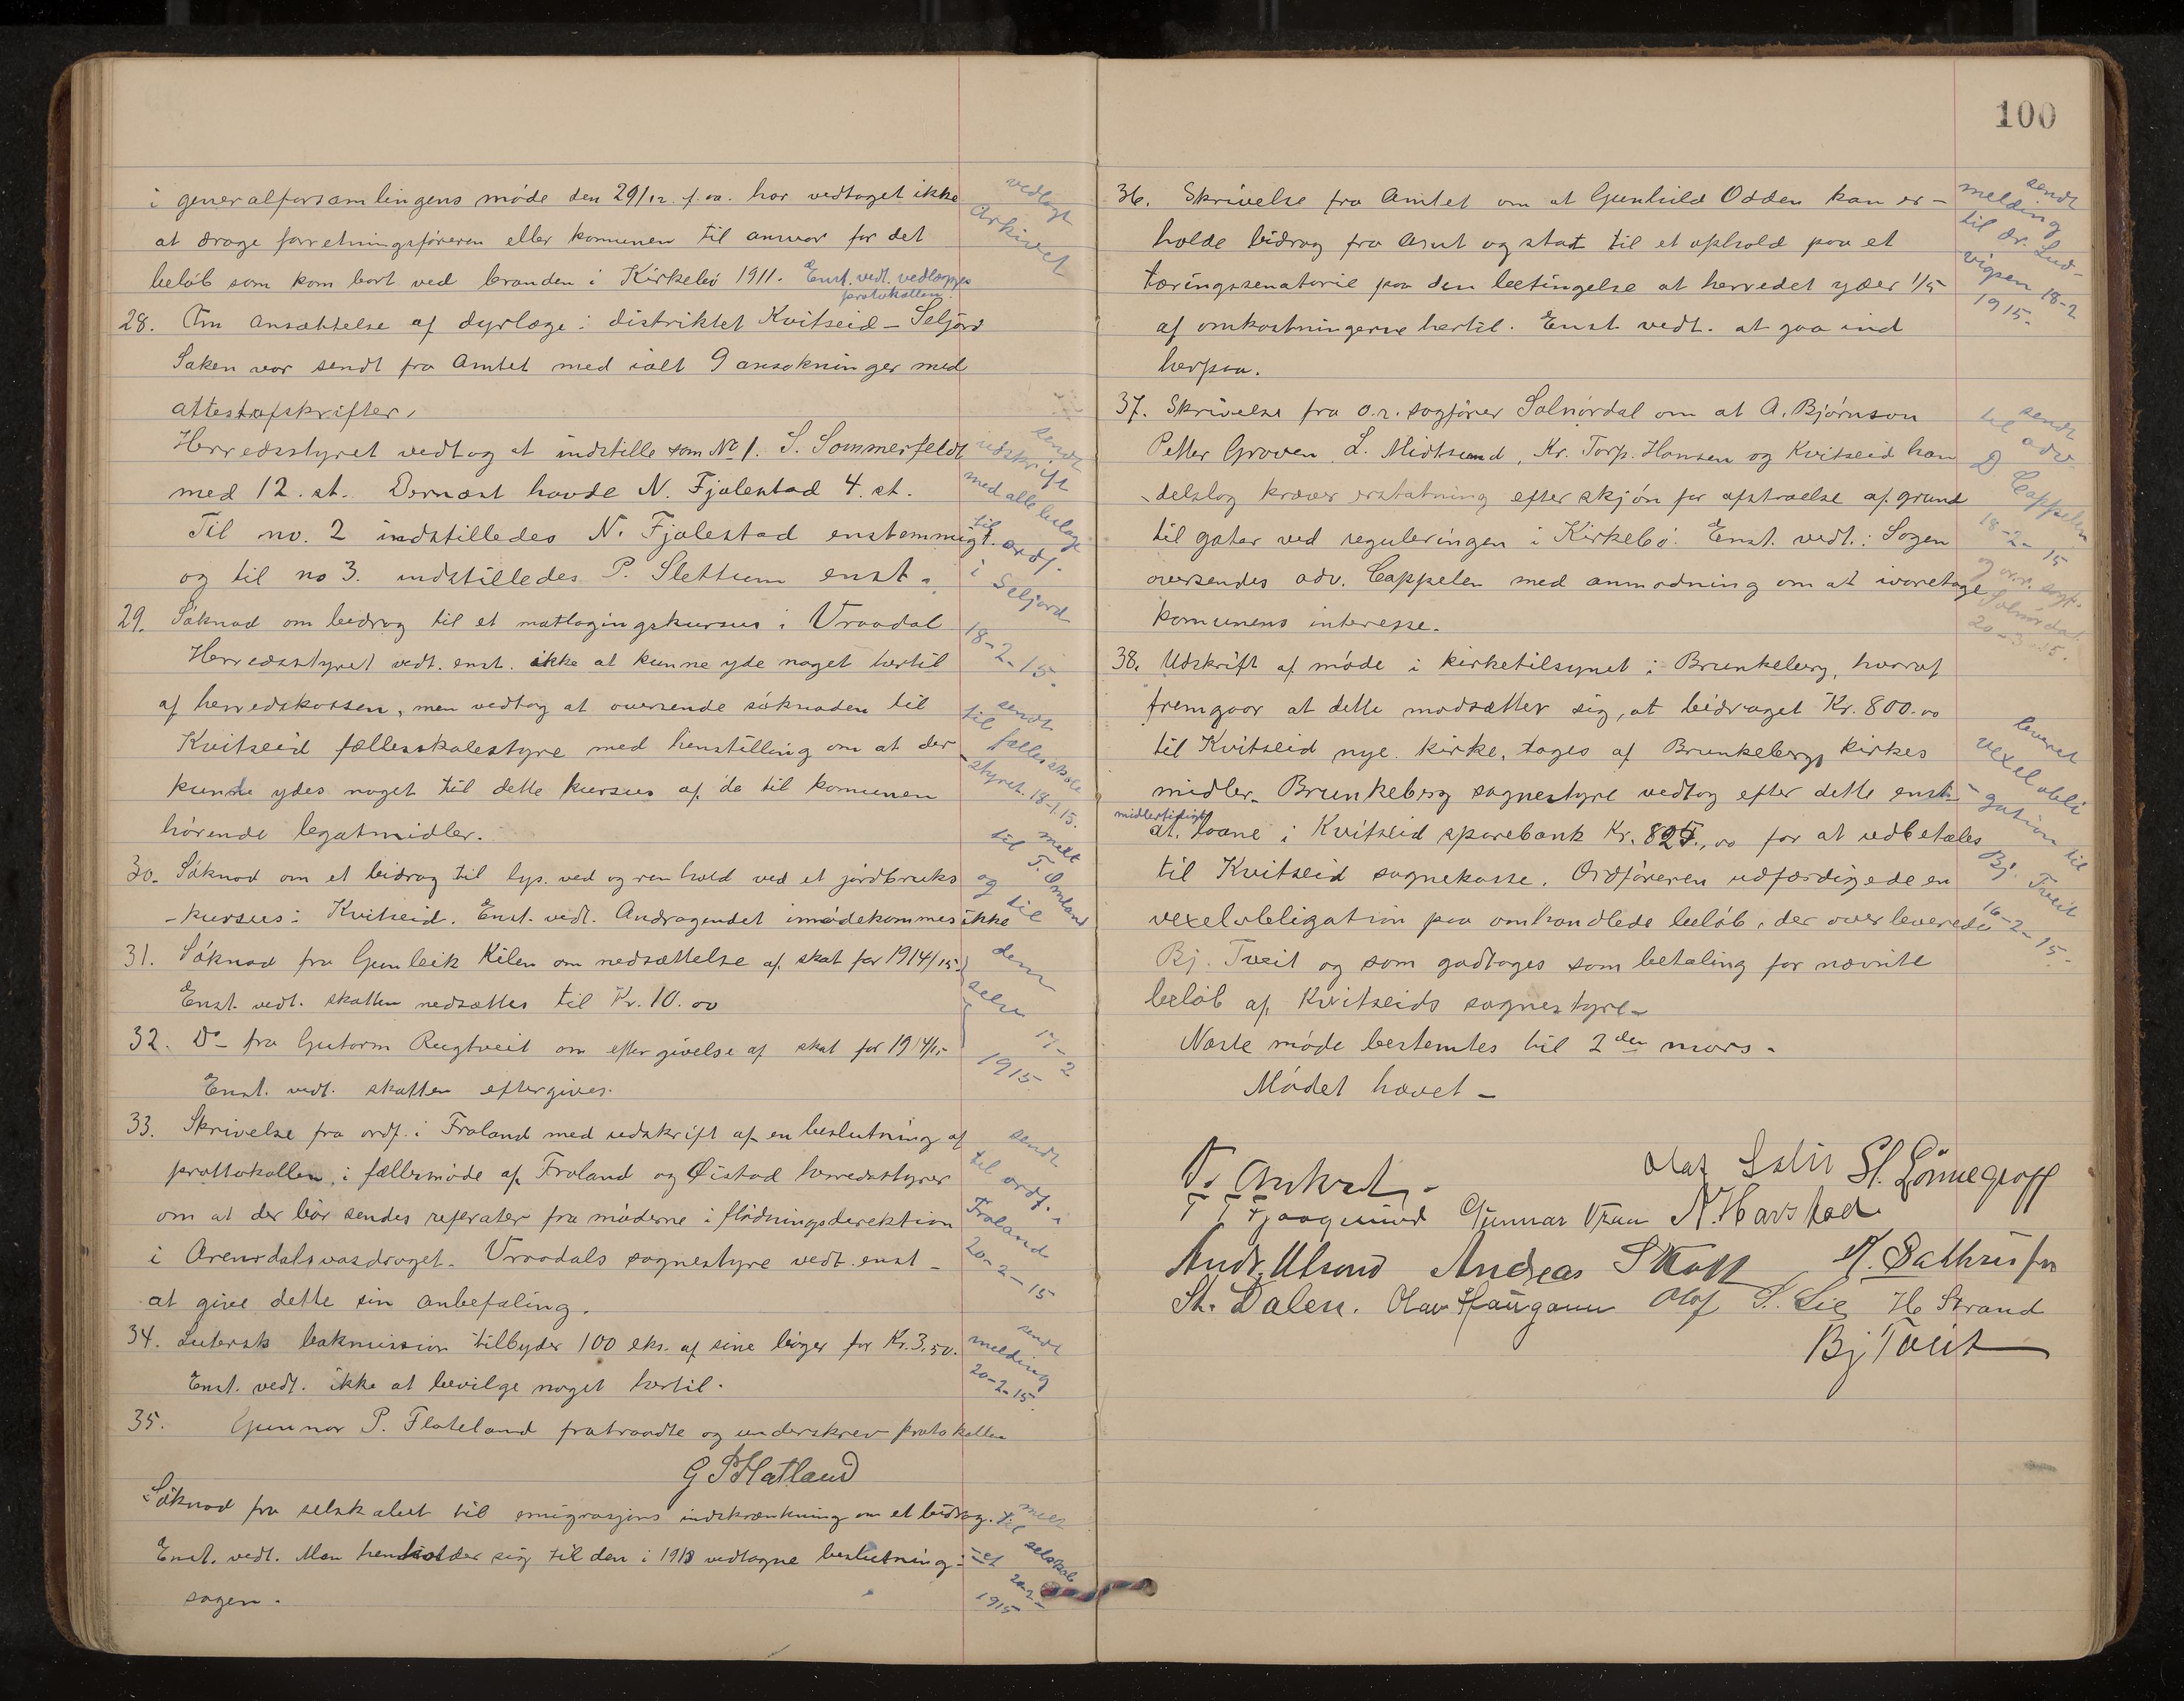 i generalforsamlingens møde den 29/12 f. aa. har vedtaget ikke
at drage forretningsføreren eller komunen til ansvar for det
beløb som kom bort ved branden i Kirkebø 1911. Enst. vedt. vedlægges
protokollen.
vedlagt
Arkivet
28. Om Ansættelse af dyrlæge i distriktet Kvitseid - Seljord
Saken var sendt fra Amtet med ialt 9 ansøkninger med
attestafskrifter.
Herredsstyret vedtog at indstille som No 1. S. Sommerfeldt
med 12. st. Dernæst havde N. Fjalestad 4. st.
Til no. 2 indstilledes N. Fjalestad enstemmigt.
og til no 3. indstilledes P. Slettum enst.
sendt
udskrift
med alle bilage
til ordf.
i Seljord
18-2-15.
29. Søknad om bidrag til et matlagingskursus i Vraadal
Herredsstyret vedt. enst. ikke at kunne yde noget hertil
af herredskassen, men vedtog at oversende søknaden til
Kvitseid fællesskolestyre med henstilling om at der
kunde ydes noget til dette kursus af de til komunen
hørende legatmidler.
sendt
til fællesskole
-styret. 18-2 15.
30. Søknad om et bidrag til lys. ved og renhold ved et jordbruks
-kursus i Kvitseid. Enst. vedt. Andragendet imødekommes ikke
melt
til T. Omland
og til
31. Søknad fra Gunleik Kilen om nedsættelse af skat for 1914/15.
Enst. vedt. skatten nedsættes til Kr. 10.00
dem
selv 17-2
1915
32. Do - fra Gutorm Rugtveit om eftergivelse af skat for 1914/15
Enst. vedt. skatten eftergives.
33. Skrivelse fra ordf. i Froland med udskrift af en beslutning af
prottokollen, i fællesmøde af Froland og Øistad herredsstyrer
om at der bør sendes referater fra møderne i flødningsdirektion
i Arendalsvasdraget. Vraadals sognestyre vedt. enst -
at give dette sin anbefaling.
sendt
til ordf. i
Froland
20-2-15
34. Lutersk bokmission tilbyder 100 eks. af sine bøger for Kr. 3,50.
Enst. vedt. ikke at bevilge noget hertil.
sendt
melding
20-2-15.
35. Gunnar P. Flateland fratraadte og underskrev protokollen
G P Flatland
Søknad fra selskabet til emigrasjons indskrænkning om et bidrag.
Enst. vedt. Man henholder sig til den i 1913 vedtagne beslutning i
sagen.
melt
til selskab
-et 20-2-
1915
100
36. Skrivelse fra Amtet om at Gunhild Odden kan er-
holde bidrag fra Amt og stat til et ophold paa et
tæringssenatorie paa den betingelse at herredet yder 1/5
af omkostningerne hertil. Enst. vedt. at gaa ind
herpaa.
sendt
melding
til dr. Lud-
vigsen 18-2
1915.
37. Skrivelse fra o.r. sagfører Solnørdal om at A. Bjørnson
Petter Groven, L. Midtsund, Kr. Torp. Hansen og Kvitseid han
-delslag kræver erstatning efter skjøn for afstaaelse af grund
til gater ved reguleringen i Kirkebø: Enst. vedt.: Sagen
oversendes adv. Cappelen med anmodning om at ivaretage
komunens interesse.
sendt
til adv.
D. Cappelen
18-2-15
og o.r. sagf.
Solnørdal.
20-3-15.
38. Udskrift af møde i kirketilsynet i Brunkeberg, hvoraf
fremgaar at dette modsætter sig, at bidraget Kr. 800.00
til Kvitseid nye kirke, tages af Brunkebergs kirkes
midler. Brunkeberg sognestyre vedtog efter dette enst.
midlertidigt
at laane i Kvitseid sparebank Kr. 825.,00 for at udbetales
til Kvitseid sognekasse. Ordføreren udfærdigede en
vexelobligation paa omhandlede beløb, der overleveredes
Bj. Tveit og som godtages som betaling for nævnte
beløb af Kvitseids sognestyre.
leveret
vexelobli
-gation til
Bj. Tveit
16-2-15.
Næste møde bestemtes til 2den mars.
Mødet hævet -
Olaf St. Lönnegroff
Gunnar Vraa N. Harstad
Andr. Ulsund Andreas
St. Dalen. Olav Haugann Olaf S. Lie H Strand
Bj Tveit